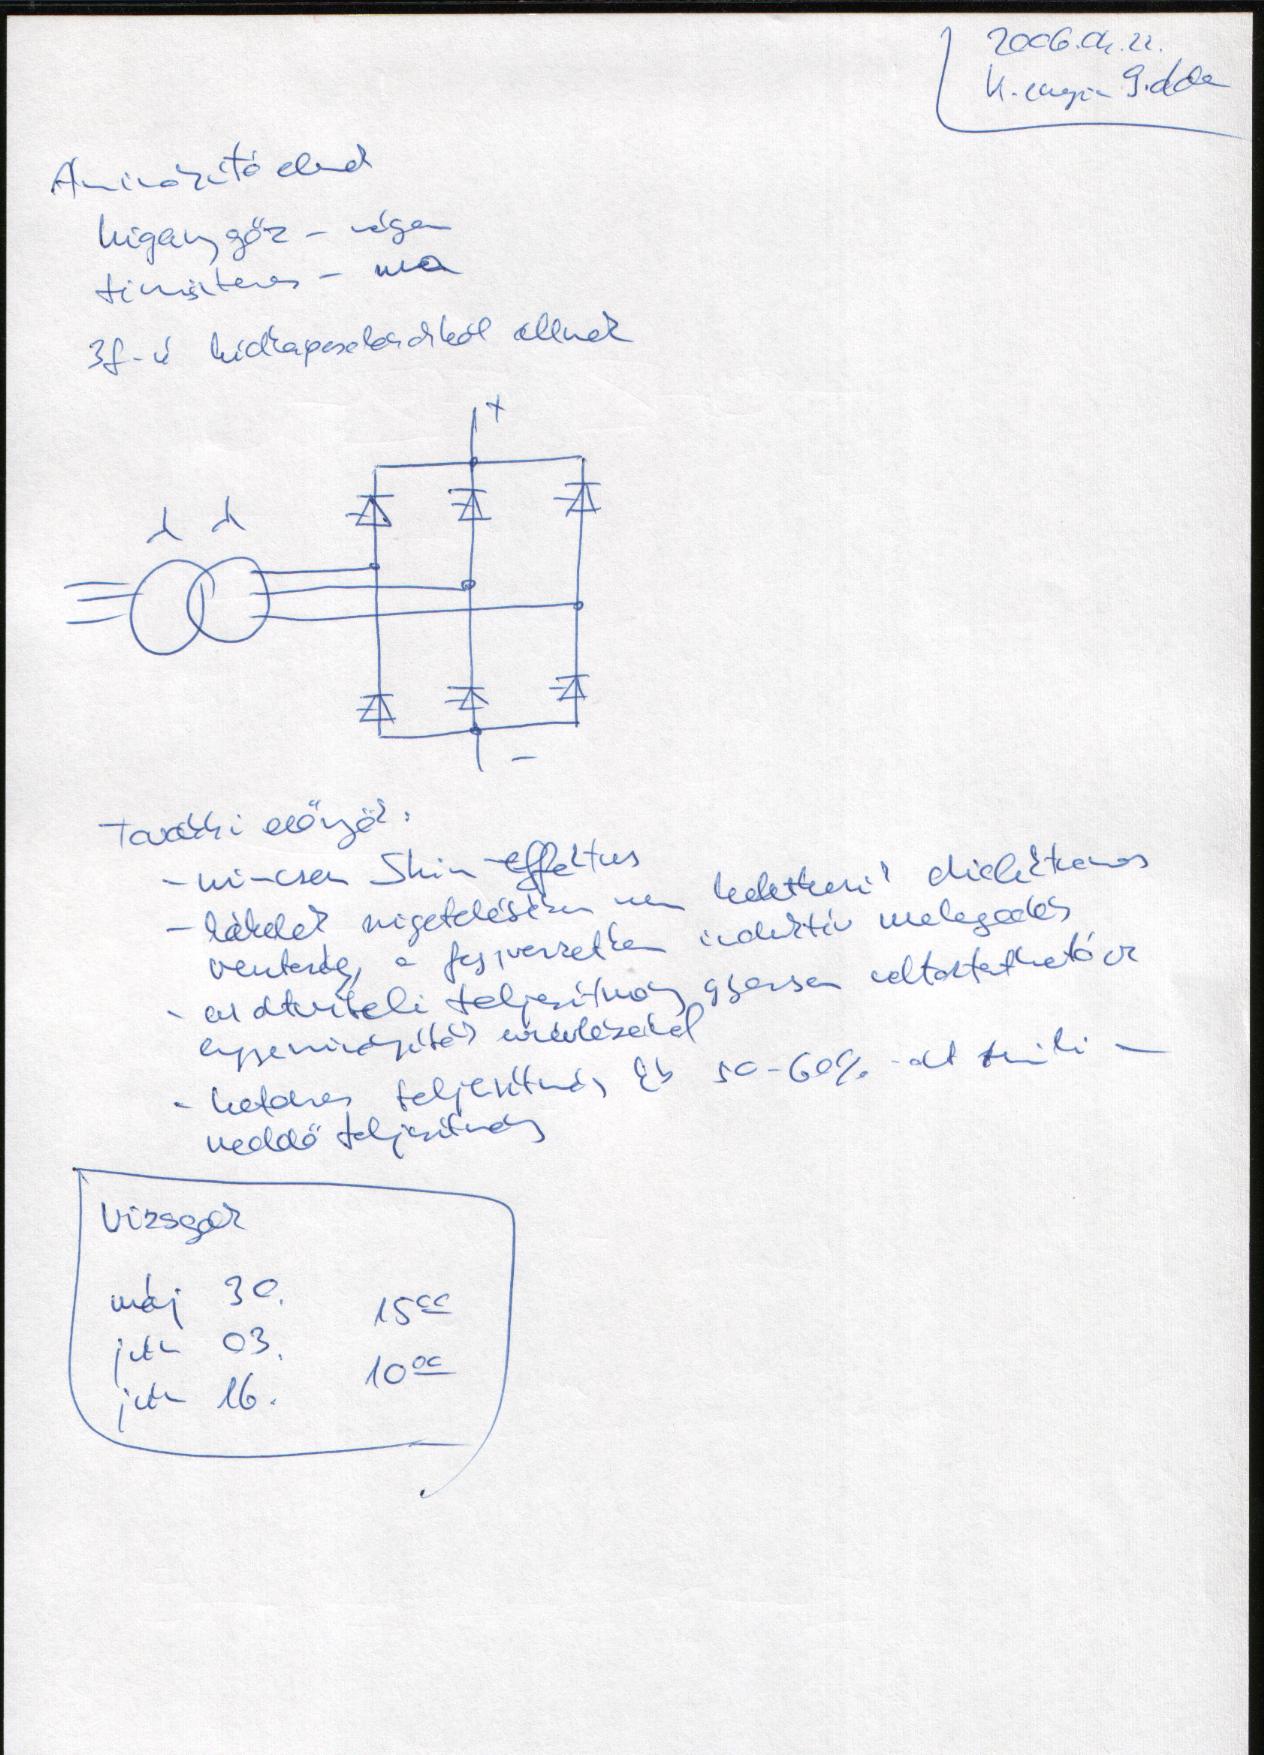 2006.04.22.
higanygőz - régen
tirisztoros - ma
3f-ú hídkapcsolásokból állnak
+
-
További előnyök:
- nincsen Skin-effektus
- kábelek szigetelésében nem keletkezik dielektromos
veszteség, a fegyverzetben induktív melegedés
- az átviteli teljesítmény gyorsan változtatható az
egyenirányítók vezérlésével
- határos teljesítmény kb 50-60%-
teljesítmény
Vizsgák
máj 30. 15 00
jún 03. 10 00
jún 16.